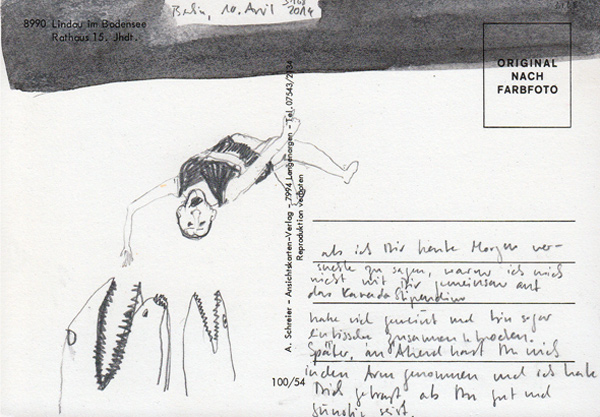 Berlin, 10. April 2014
8990 Lindau im Bodensee
Rathaus 15. Jhdt.
ORIGINAL
NACH
FARBFOTO
A. Schreier - Ansichtskarten-Verlag - 7994 Langenargen - Tel. 07543/2134
Reproduktion verboten
100/54
als ich Dir heute Morgen ver-
suchte zu sagen, warum ich mich
nicht mit Dir gemeinsam auf
das Kanada Stipendium
habe viel geweint und bin sogar
ein bisschen zusammen gebrochen.
Später, am Abend hast Du mich
in den Arm genommen und ich habe
Dich gefragt, ob Du gut und
günstig seist.